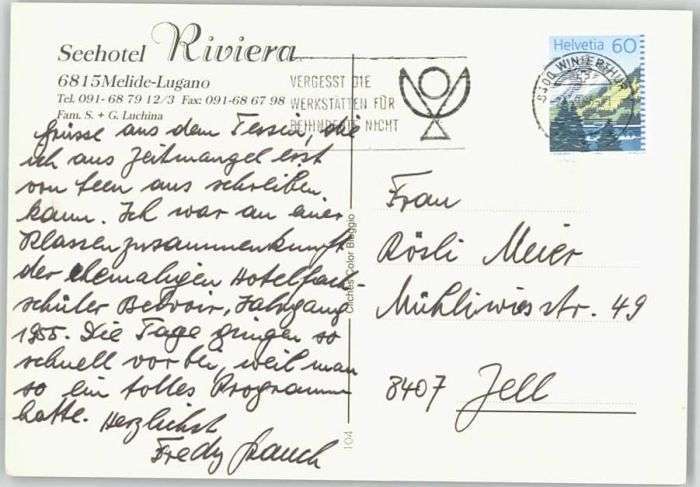 Seehotel Riviera
6815 Melide-Lugano
Tel. 091- 68 79 12/3 Fax: 091-68 67 98
Fam. S. + G. Luchina
VERGESST DIE
WERKSTÄTTEN FÜR
BEHINDERTE NICHT
Helvetia 60
WINTERTHUR
Grüsse aus dem Tessin, die
ich aus Zeitmangel erst
von aus schreiben
kann. Ich war an einer
Klassenzusammenkunft
der ehemaligen Hotelfach-
schüler Jahrgang
1955. Die Tage gingen so
schnell vorbei, weil man
so ein tolles Programm
hatte. Herzlichst
Fredy
Clichés Color Bleggio
104
Frau
Rösli Meier
Mühliwiesstr. 49
8407 Zell